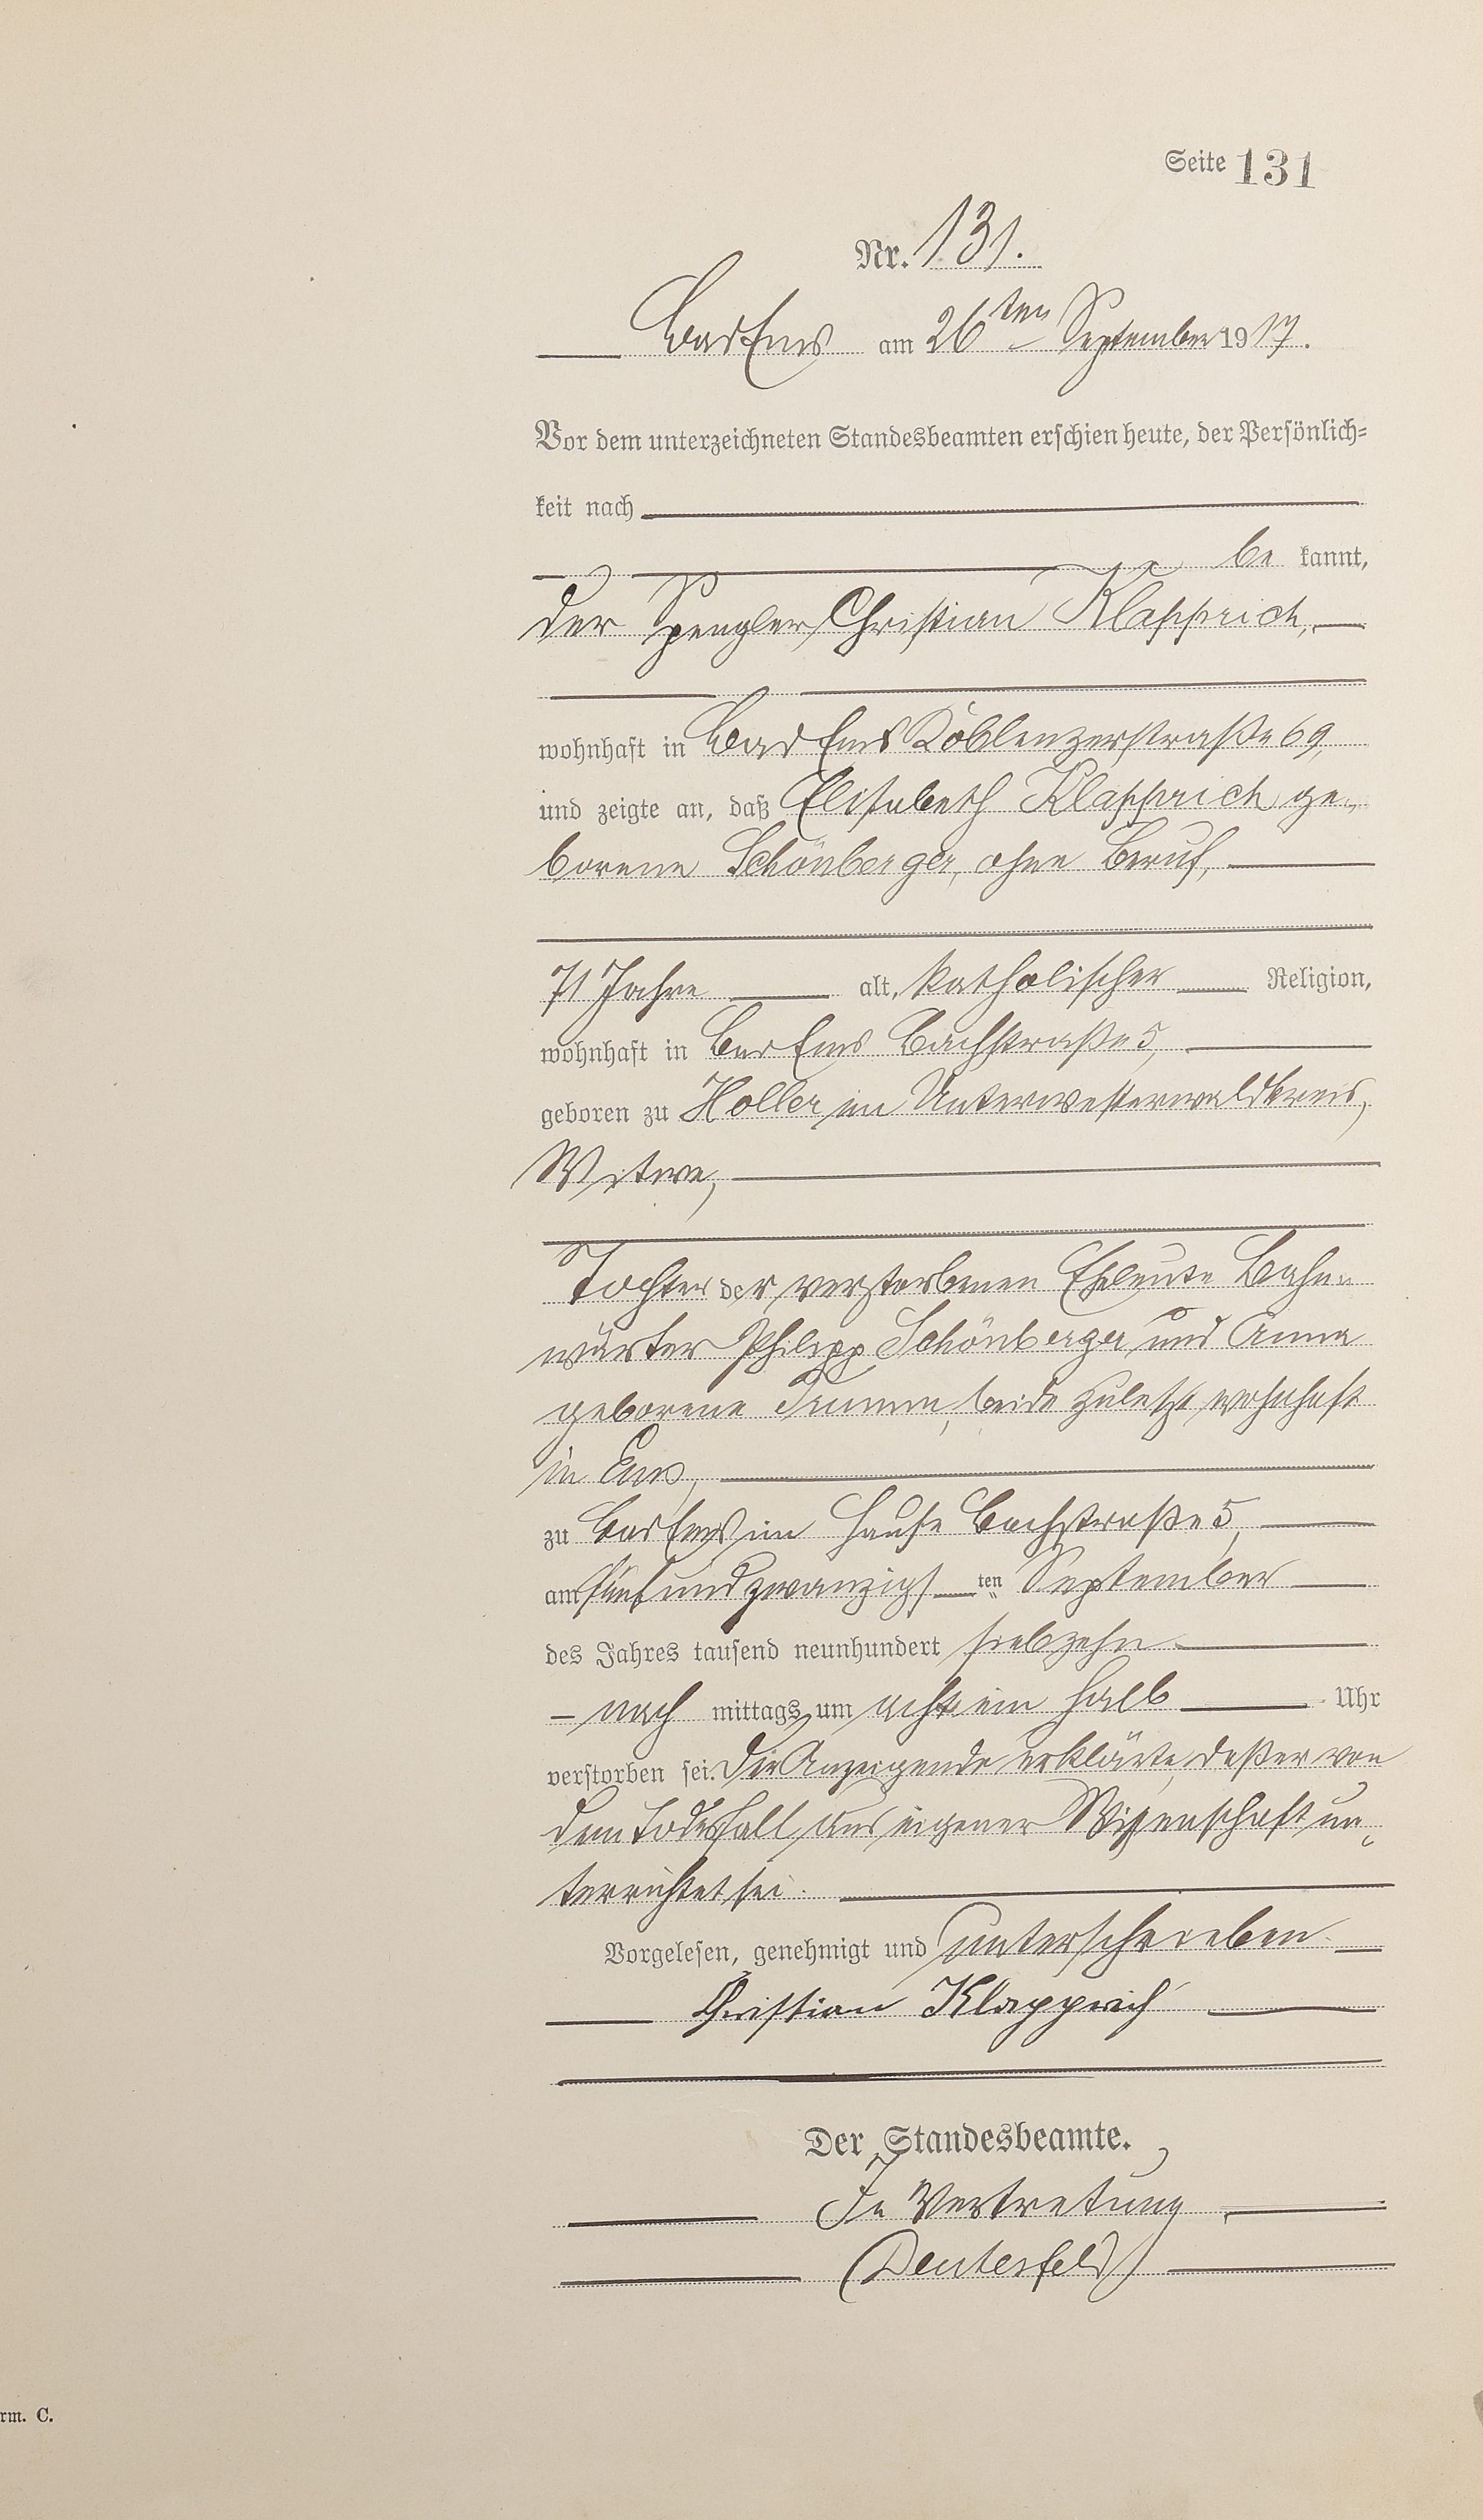 Seite 131
Nr. 131.
Bad Ems am 26ten September 1917.
Vor dem unterzeichneten Standesbeamten erschien heute, der Persönlich=
keit nach
be kannt,
der Spengler Christian Klapprich,
wohnhaft in Bad Ems Koblenzerstraße 69,
und zeigte an, daß Elisabeth Klapprich ge-
borene Schönberger, ohne Beruf,
71 Jahre alt, katholischer Religion,
wohnhaft in Bad Ems Bachstraße 5,
geboren zu Holler im Unterwesterwaldkreis,
Witwe,
Tochter der verstorbenen Eheleute Bahn-
wärter Philipp Schönberger und Anna
geborene beide zuletzt wohnhaft
in Ems,
zu Bad Ems im Hause Bachstraße 5,
am fünfundzwanzigs ten September
des Jahres tausend neunhundert siebzehn
nach mittags um acht ein halb Uhr
verstorben sei. Der Anzeigende erklärte, daß er von
dem Todesfall aus eigener Wissenschaft un-
terrichtet sei.
Vorgelesen, genehmigt und unterschrieben
Christian Klapprich
Der Standesbeamte.
In Vertretung
rm. C.